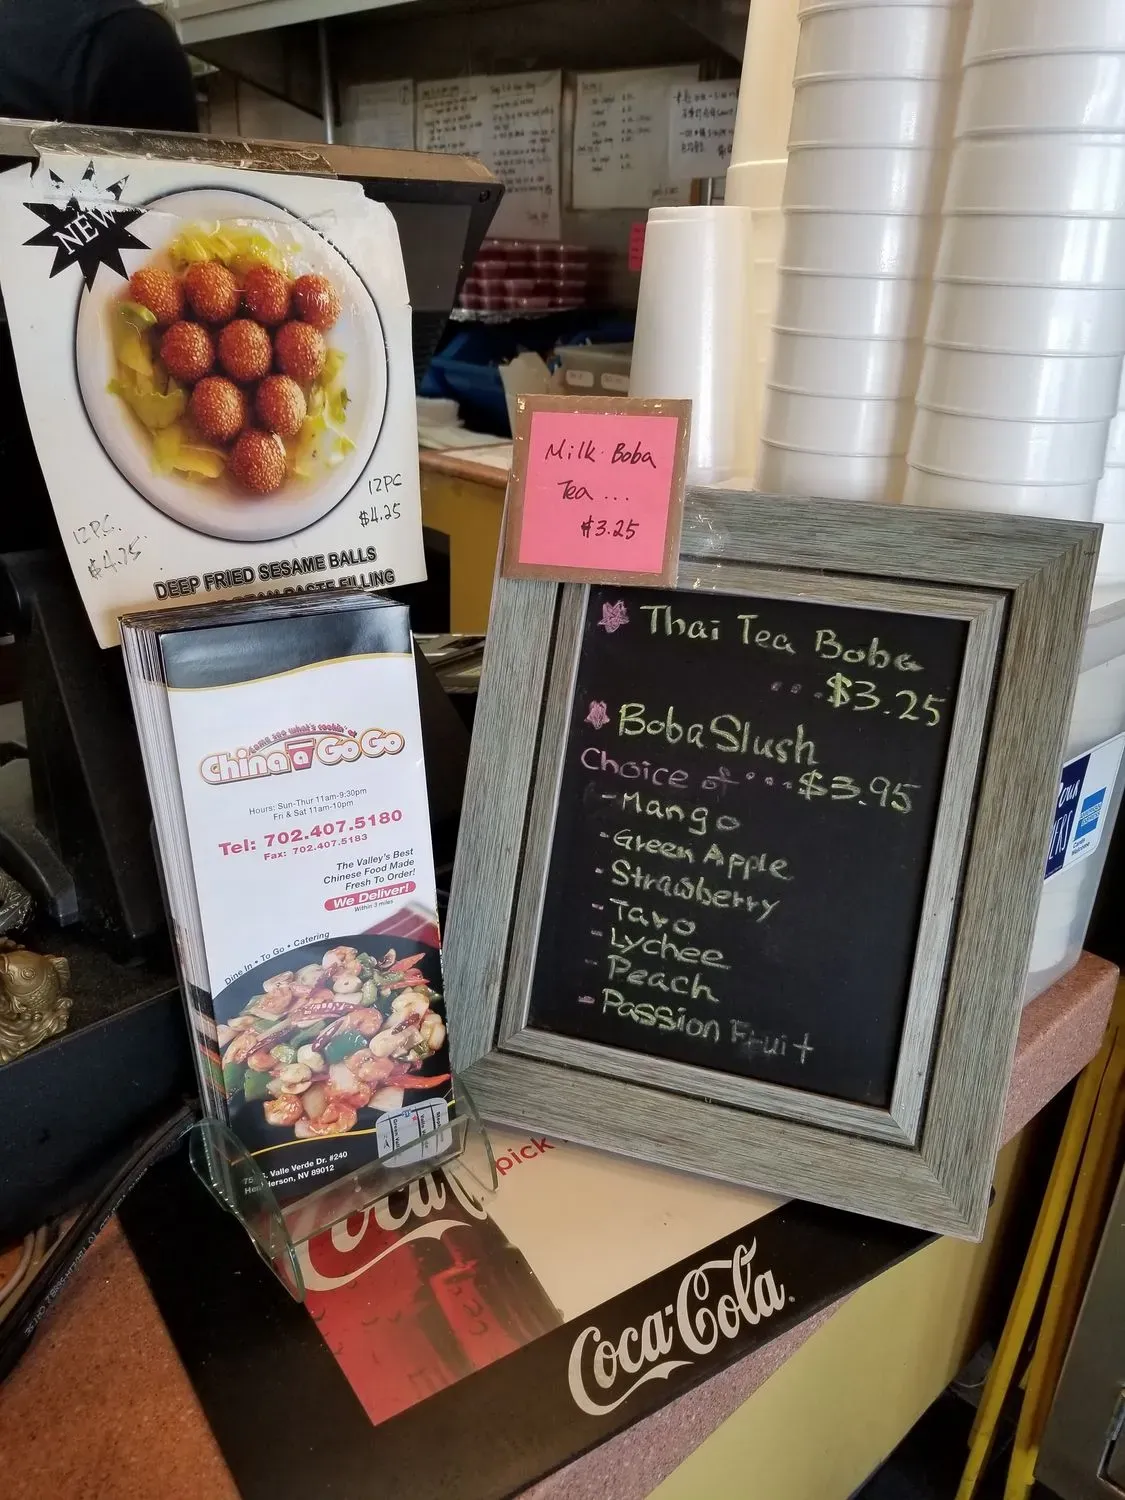 NEW
12PC
$4.25
12PC.
$4.75
DEEP FRIED SESAME BALLS
PASTE FILLING
Milk Boba
Tea ...
$3.25
Thai Tea Boba
...$3.25
Boba Slush
Choice of ...$3.95
- Mango
- Green Apple
- Strawberry
- Taro
- Lychee
- Peach
- Passion Fruit
come see what's cookin' at
China a Go Go
Hours: Sun-Thur 11am-9:30pm
Fri & Sat 11am-10pm
Tel: 702.407.5180
Fax: 702.407.5183
The Valley's Best
Chinese Food Made
Fresh To Order!
We Deliver!
Within 3 miles
Dine In • To Go • Catering
Valle Verde Dr. #240
Henderson, NV 89012
pick
Coca
Coca-Cola
Cards
Welcome